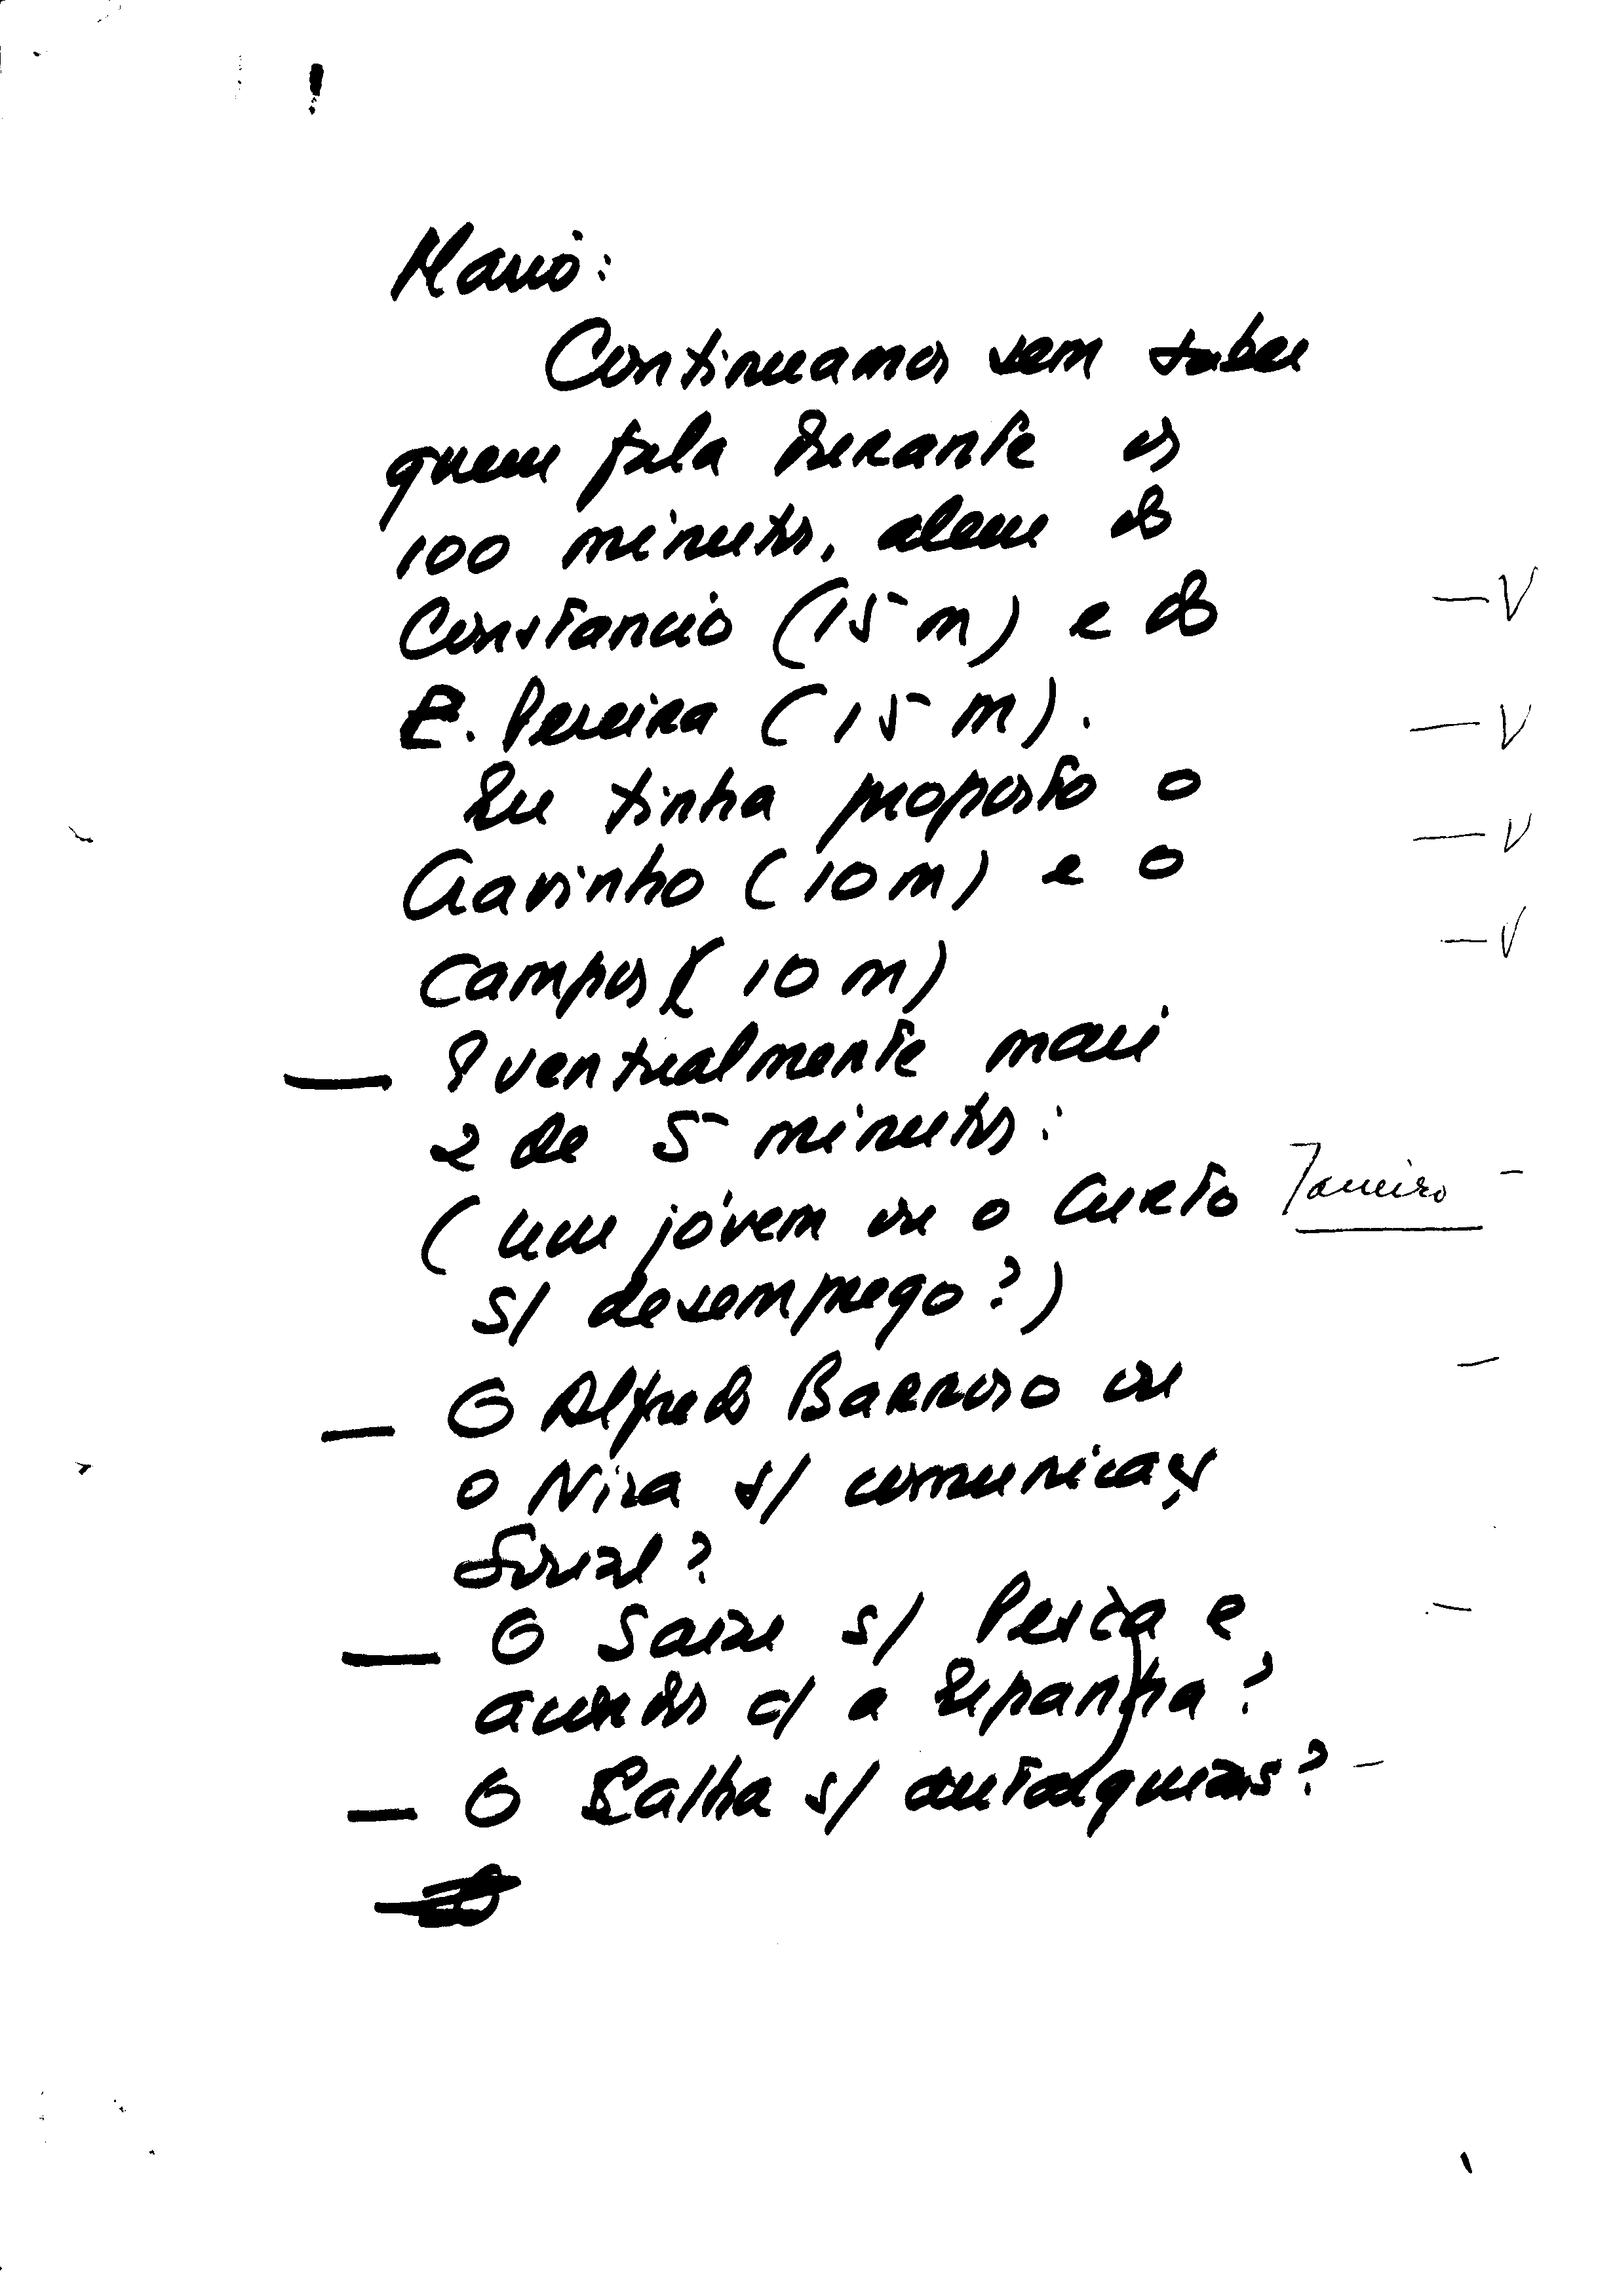 Mario:
Continuamos sem saber
quem fala durante os
100 minutos, alem do
Constancio (15 m) e do — V
E. Pereira (15 m). — V
Eu tinha proposto o
Gavinho (10 m) e o — V
Campos (10 m) — V
— Eventualmente mais
2 de 5 minutos:
(um jóvem ou o Curto Janeiro —
s/ desemprego?)
— O Alfredo Barroso ou —
o Niza s/ comunicação
Social?
— O s/ Pesca e —
acordos c/ a Espanha?
— O s/ autarquias? —